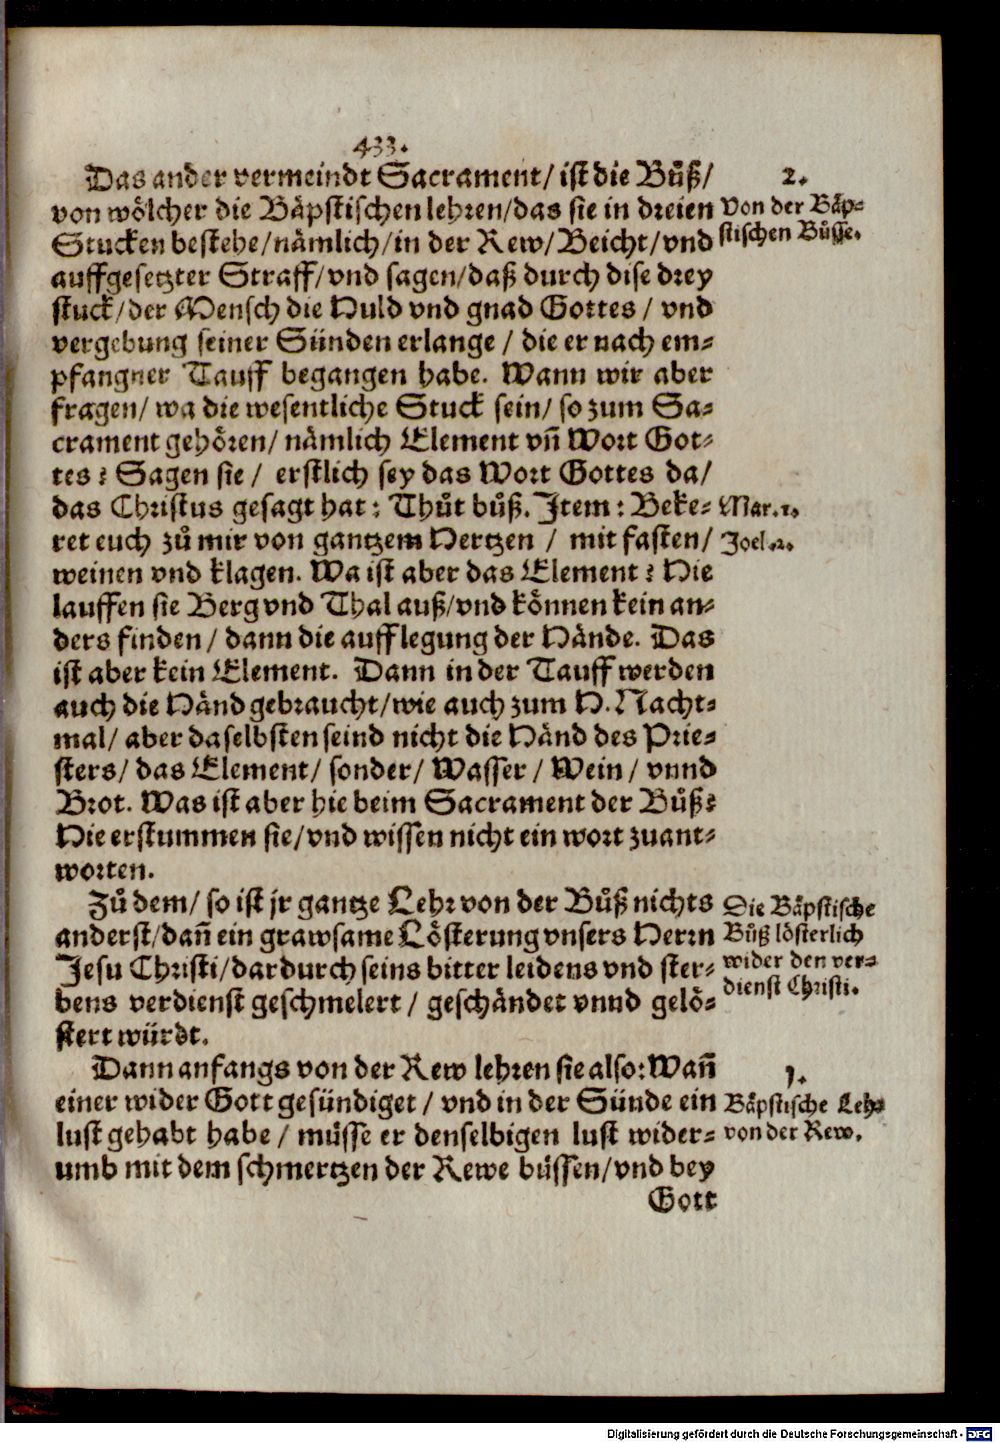 433.
Das ander vermeindt Sacrament/ ist die Bůß/
von wölcher die Bäpstischen lehren/das sie in dreien
Stucken bestehe/nämlich/in der Rew/Beicht/vnd
auffgesetzter Straff/vnd sagen/daß durch dise drey
stuck/der Mensch die Huld vnd gnad Gottes / vnd
vergebung seiner Sünden erlange / die er nach em-
pfangner Tauff begangen habe. Wann wir aber
fragen/ wa die wesentliche Stuck sein/ so zum Sa-
crament gehören/ nämlich Element vñ Wort Got-
tes? Sagen sie / erstlich sey das Wort Gottes da/
das Christus gesagt hat: Thůt bůß. Item: Beke-
ret euch zů mir von gantzem Hertzen / mit fasten/
weinen vnd klagen. Wa ist aber das Element? Hie
lauffen sie Berg vnd Thal auß/vnd können kein an-
ders finden/ dann die aufflegung der Hände. Das
ist aber kein Element. Dann in der Tauff werden
auch die Händ gebraucht/wie auch zum H. Nacht-
mal/ aber daselbsten seind nicht die Händ des Prie-
sters/ das Element/ sonder/ Wasser / Wein / vnnd
Brot. Was ist aber hie beim Sacrament der Bůß?
Hie erstummen sie/vnd wissen nicht ein wort zuant-
worten.
Zů dem/ so ist jr gantze Lehr von der Bůß nichts
anderst/dañ ein grawsame Lösterung vnsers Herrn
Jesu Christi/dardurch seins bitter leidens vnd ster-
bens verdienst geschmelert / geschändet vnnd gelö-
stert würdt.
Dann anfangs von der Rew lehren sie also: Wañ
einer wider Gott gesündiget / vnd in der Sünde ein
lust gehabt habe / müsse er denselbigen lust wider-
umb mit dem schmertzen der Rewe büssen/vnd bey
Gott
2.
Von der Bäp-
stischen Bůsse.
Mar.1.
Joel.2.
Die Bäpstische
Bůß lösterlich
wider den ver-
dienst Christi.
1.
Bäpstische Lehr
von der Rew.
Digitalisierung gefördert durch die Deutsche Forschungsgemeinschaft - DFG